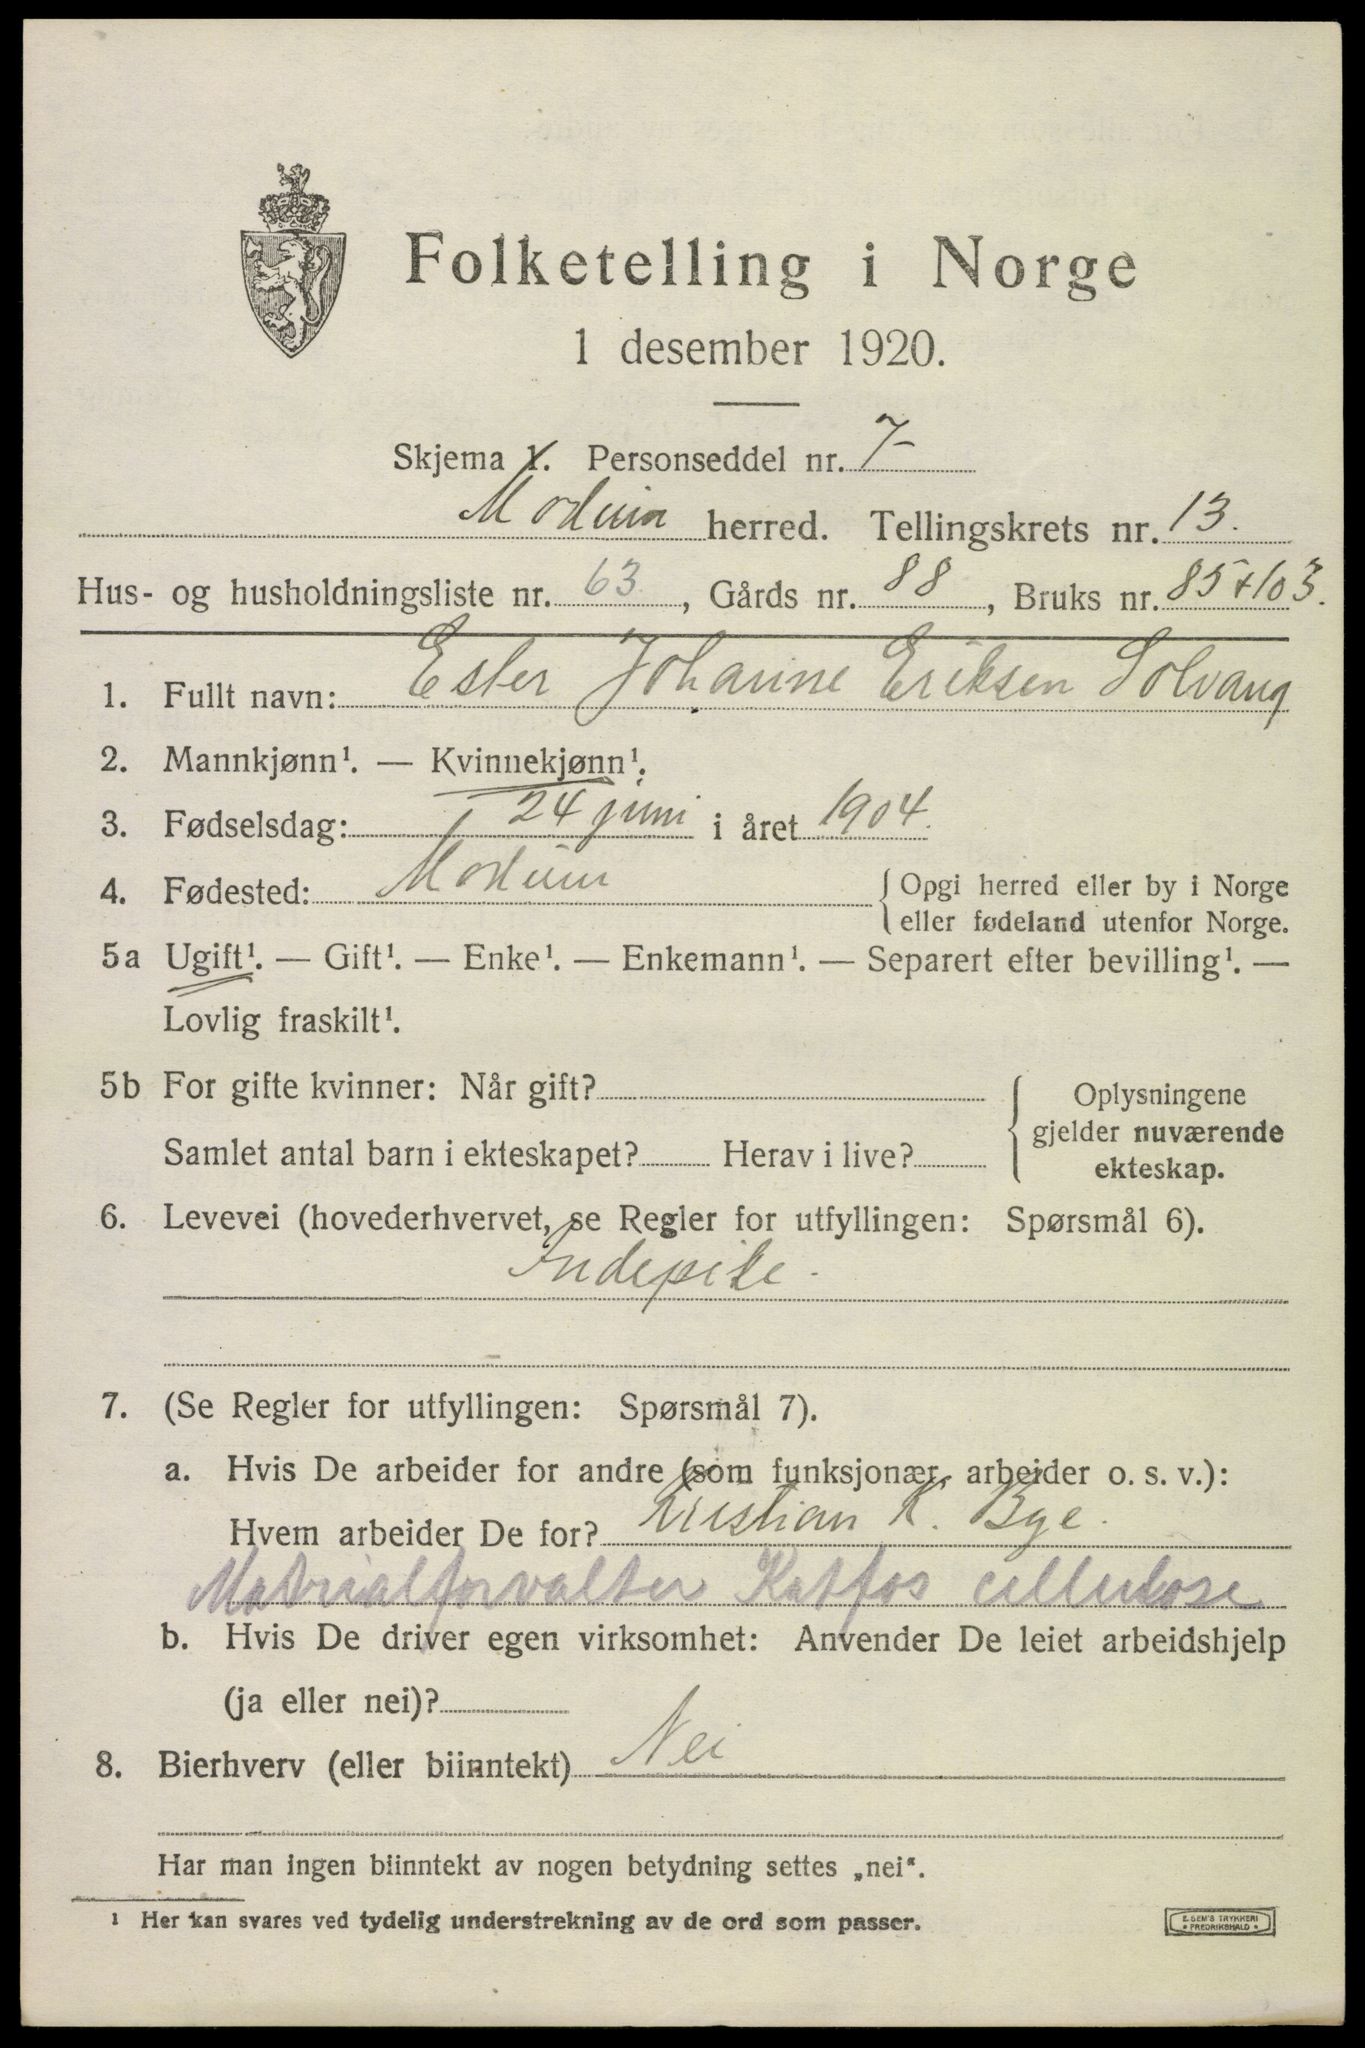 Folketelling i Norge
1 desember 1920.
Skjema 1. Personseddel nr. 7
Modum herred. Tellingskrets nr. 13.
Hus- og husholdningsliste nr. 63, Gårds nr. 88, Bruks nr. 85+103.
1. Fullt navn: Ester Johanne Eriksen Solvang
2. Mannkjønn¹. — Kvinnekjønn¹.
3. Fødselsdag: 24 juni i året 1904.
4. Fødested: Modum { Opgi herred eller by i Norge
eller fødeland utenfor Norge.
5a Ugift¹. — Gift¹. — Enke¹. — Enkemann¹. — Separert efter bevilling¹. —
Lovlig fraskilt¹.
5b For gifte kvinner: Når gift? { Oplysningene
gjelder nuværende
Samlet antal barn i ekteskapet? Herav i live?
ekteskap.
6. Levevei (hovederhvervet, se Regler for utfyllingen: Spørsmål 6).
Indepike.
7. (Se Regler for utfyllingen: Spørsmål 7).
a. Hvis De arbeider for andre (som funksjonær, arbeider o. s. v.):
Hvem arbeider De for? Kristian K. Bye.
Materialforvalter Katfos cellulose
b. Hvis De driver egen virksomhet: Anvender De leiet arbeidshjelp
(ja eller nei)?
8. Bierhverv (eller biinntekt) Nei
Har man ingen biinntekt av nogen betydning settes „nei“.
¹ Her kan svares ved tydelig understrekning av de ord som passer.
E. SEM'S TRYKKERI
FREDRIKSHALD